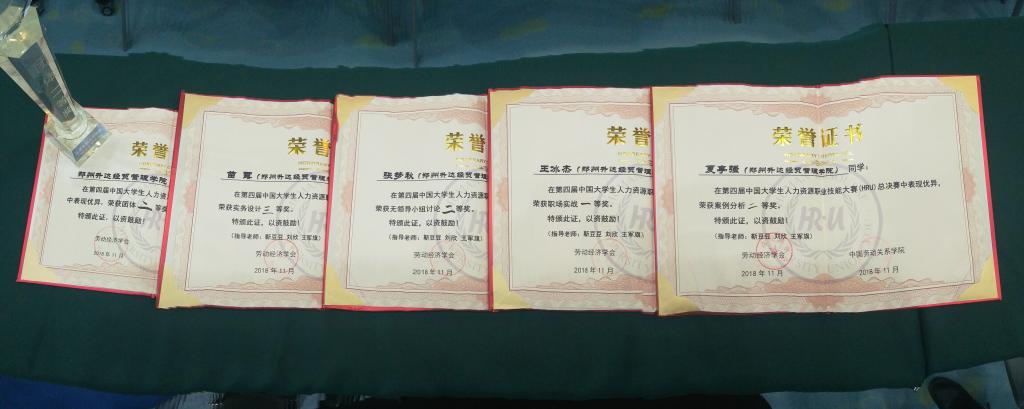 郑州升达经贸管理学院
在第四届中国大学生人力
中表现优异,荣获团体二
特颁此证,以资鼓励!
劳动经济学会
2018年11月
荣誉
苗霄(郑州升达经贸管理学院
在第四届中国大学生人力资源
荣获实务设计三等奖。
特颁此证,以资鼓励!
(指导老师:靳豆豆 刘欣 王军旗)
劳动经济学会
2018年11月
荣誉
张梦秋(郑州升达经贸管理学院
在第四届中国大学生人力资源
荣获无领导小组讨论二等奖。
特颁此证,以资鼓励!
(指导老师:靳豆豆 刘欣 王军旗)
劳动经济学会
2018年11月
荣誉
王冰杰(郑州升达经贸管理学院
在第四届中国大学生人力资源职
荣获职场实战一等奖。
特颁此证,以资鼓励!
(指导老师:靳豆豆 刘欣 王军旗)
劳动经济学会
2018年11月
荣誉证书
夏亭疆(郑州升达经贸管理学院)同学:
在第四届中国大学生人力资源职业技能大赛(HRU)总决赛中表现优异,
荣获案例分析二等奖。
特颁此证,以资鼓励!
HRU
(指导老师:靳豆豆 刘欣 王军旗)
劳动经济学会 中国劳动关系学院
2018年11月 2018年11月